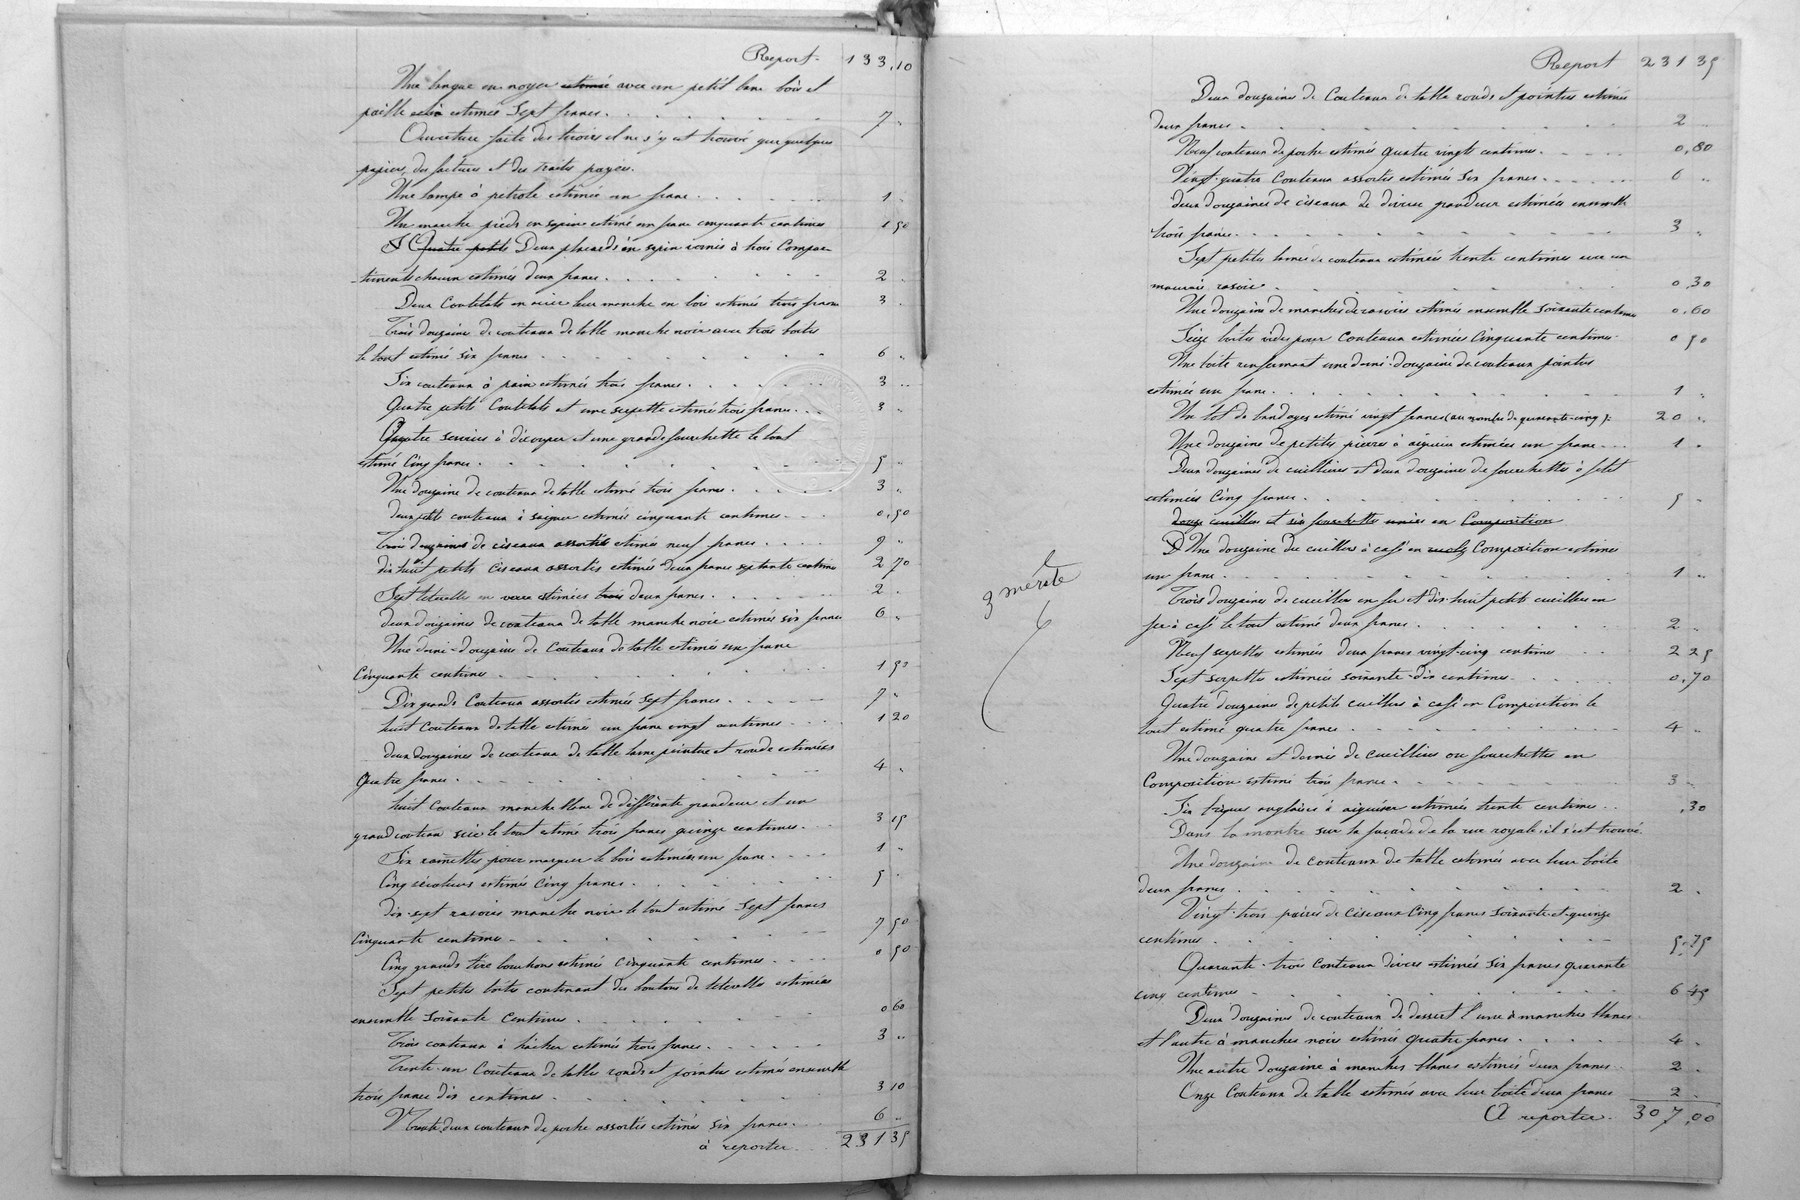 Report. 133,10
Une banque en noyer estimée avec un petit banc bois et
paille estimés Sept francs. 7 "
Ouverture faite des tiroirs il ne s'y est trouvé que quelques
papiers, des factures et des traites payées.
Une lampe à pétrole estimée un franc 1 "
Un marche pieds en sapin estimé un franc cinquante centimes 1 50
Quatre petits Deux placards en sapin vernis à trois Compar-
-timents chacun estimés deux francs. 2 "
Deux Coutelats en acier leur manche en bois estimés trois francs 3 "
Trois douzaines de couteaux de table manche noir avec trois boites
le tout estimé six francs 6 "
Six couteaux à pain estimés trois francs. 3 "
Quatre petits Coutelats et une serpette estimé trois francs. 3 "
Quatre services à découper et une grande fourchette le tout
estimé Cinq francs. 5 "
Une douzaine de couteaux de table estimé trois francs. 3 "
deux petits couteaux à saigner estimés cinquante centimes. 0,50
Trois douzaines de ciseaux assortis estimés neuf francs 9 "
dix huit petits ciseaux assortis estimés deux francs septante centimes 2 70
Sept tetevelles en verre estimées trois deux francs. 2 "
deux douzaines de couteaux de table manche noir estimés six francs 6 "
Une demi-douzaine de Couteaux de table estimés un franc
Cinquante centimes 1 50
Dix grands Couteaux assortis estimés sept francs. 7 "
huit Couteaux de table estimés un franc vingt centimes 1 20
deux douzaines de couteaux de table lame pointue et ronde estimées
Quatre francs. 4 "
huit Couteaux manche blanc de différente grandeur et un
grand couteau scie le tout estimé trois francs quinze centimes. 3 15
Six rainettes pour marquer le bois estimées un franc. 1 "
Cinq sécateurs estimés Cinq francs. 5 "
dix-sept rasoirs manche noir le tout estimé Sept francs
Cinquante centimes 7 50
Cinq grands tire bouchons estimés Cinquante centimes 0 50
Sept petites boites contenant des boutons de tetevelles estimées
ensemble soixante Centimes 0 60
Trois couteaux à hâcher estimés trois francs. 3 "
Trente-un Couteaux de tables ronds et pointus estimés ensemble
trois francs dix centimes. 3 10
Trente deux couteaux de poche assortis estimés six francs 6 "
à reporter 231 35
Report 231 35
Deux douzaines de Couteaux de table ronds et pointus estimés
deux francs. 2 "
Neuf couteaux de poche estimés Quatre vingts centimes. 0,80
Vingt-quatre Couteaux assortis estimés Six francs. 6 "
deux douzaines de ciseaux de diverse grandeur estimées ensemble
trois francs. 3 "
Sept petites lames de couteaux estimées trente centimes avec un
mauvais rasoir. 0,30
Une douzaine de manches de rasoirs estimés ensemble Soixante centimes 0,60
Seize boites vides pour Couteaux estimées Cinquante centimes. 0 50
Une boite renfermant une demi-douzaine de couteaux pointus
estimée un franc. 1 "
Un lot de bandages estimé vingt francs (au nombre de quarante-cinq). 20 "
Une douzaine de petites pierres à aiguiser estimées un franc. 1 "
Deux douzaines de cueillières et deux douzaines de fourchettes
estimées Cinq francs. 5 "
douze cueillers et six fourchettes en Composition
Une douzaine de cueillers à café en Composition estimées
un franc. 1 "
Trois douzaines de cueillers en fer et dix-huit petits cueillers en
fer à café le tout estimé deux francs. 2 "
Neuf serpettes estimées deux francs vingt-cinq centimes 2 25
Sept serpettes estimées soixante-dix centimes. 0,70
Quatre douzaines de petits cueillers à café en Composition le
tout estimé quatre francs 4 "
Une douzaine et demie de cueillières ou fourchettes en
Composition estimé trois francs. 3 "
Six pierres anglaises à aiguiser estimées trente centimes. ,30
Dans la montre sur la façade de la rue royale il s'est trouvé
Une douzaine de couteaux de table estimés avec leur boite
deux francs. 2 "
Vingt-trois paires de ciseaux Cinq francs soixante-et-quinze
centimes. 5,75
Quarante-trois Couteaux divers estimés six francs quarante
cinq centimes 6 45
Deux douzaines de couteaux de dessert l'une à manches blancs
et l'autre à manches noirs estimés quatre francs. 4 "
Une autre douzaine à manches blancs estimés deux francs. 2 "
Onze Couteaux de table estimés avec leur boite deux francs 2 "
A reporter. 307,00